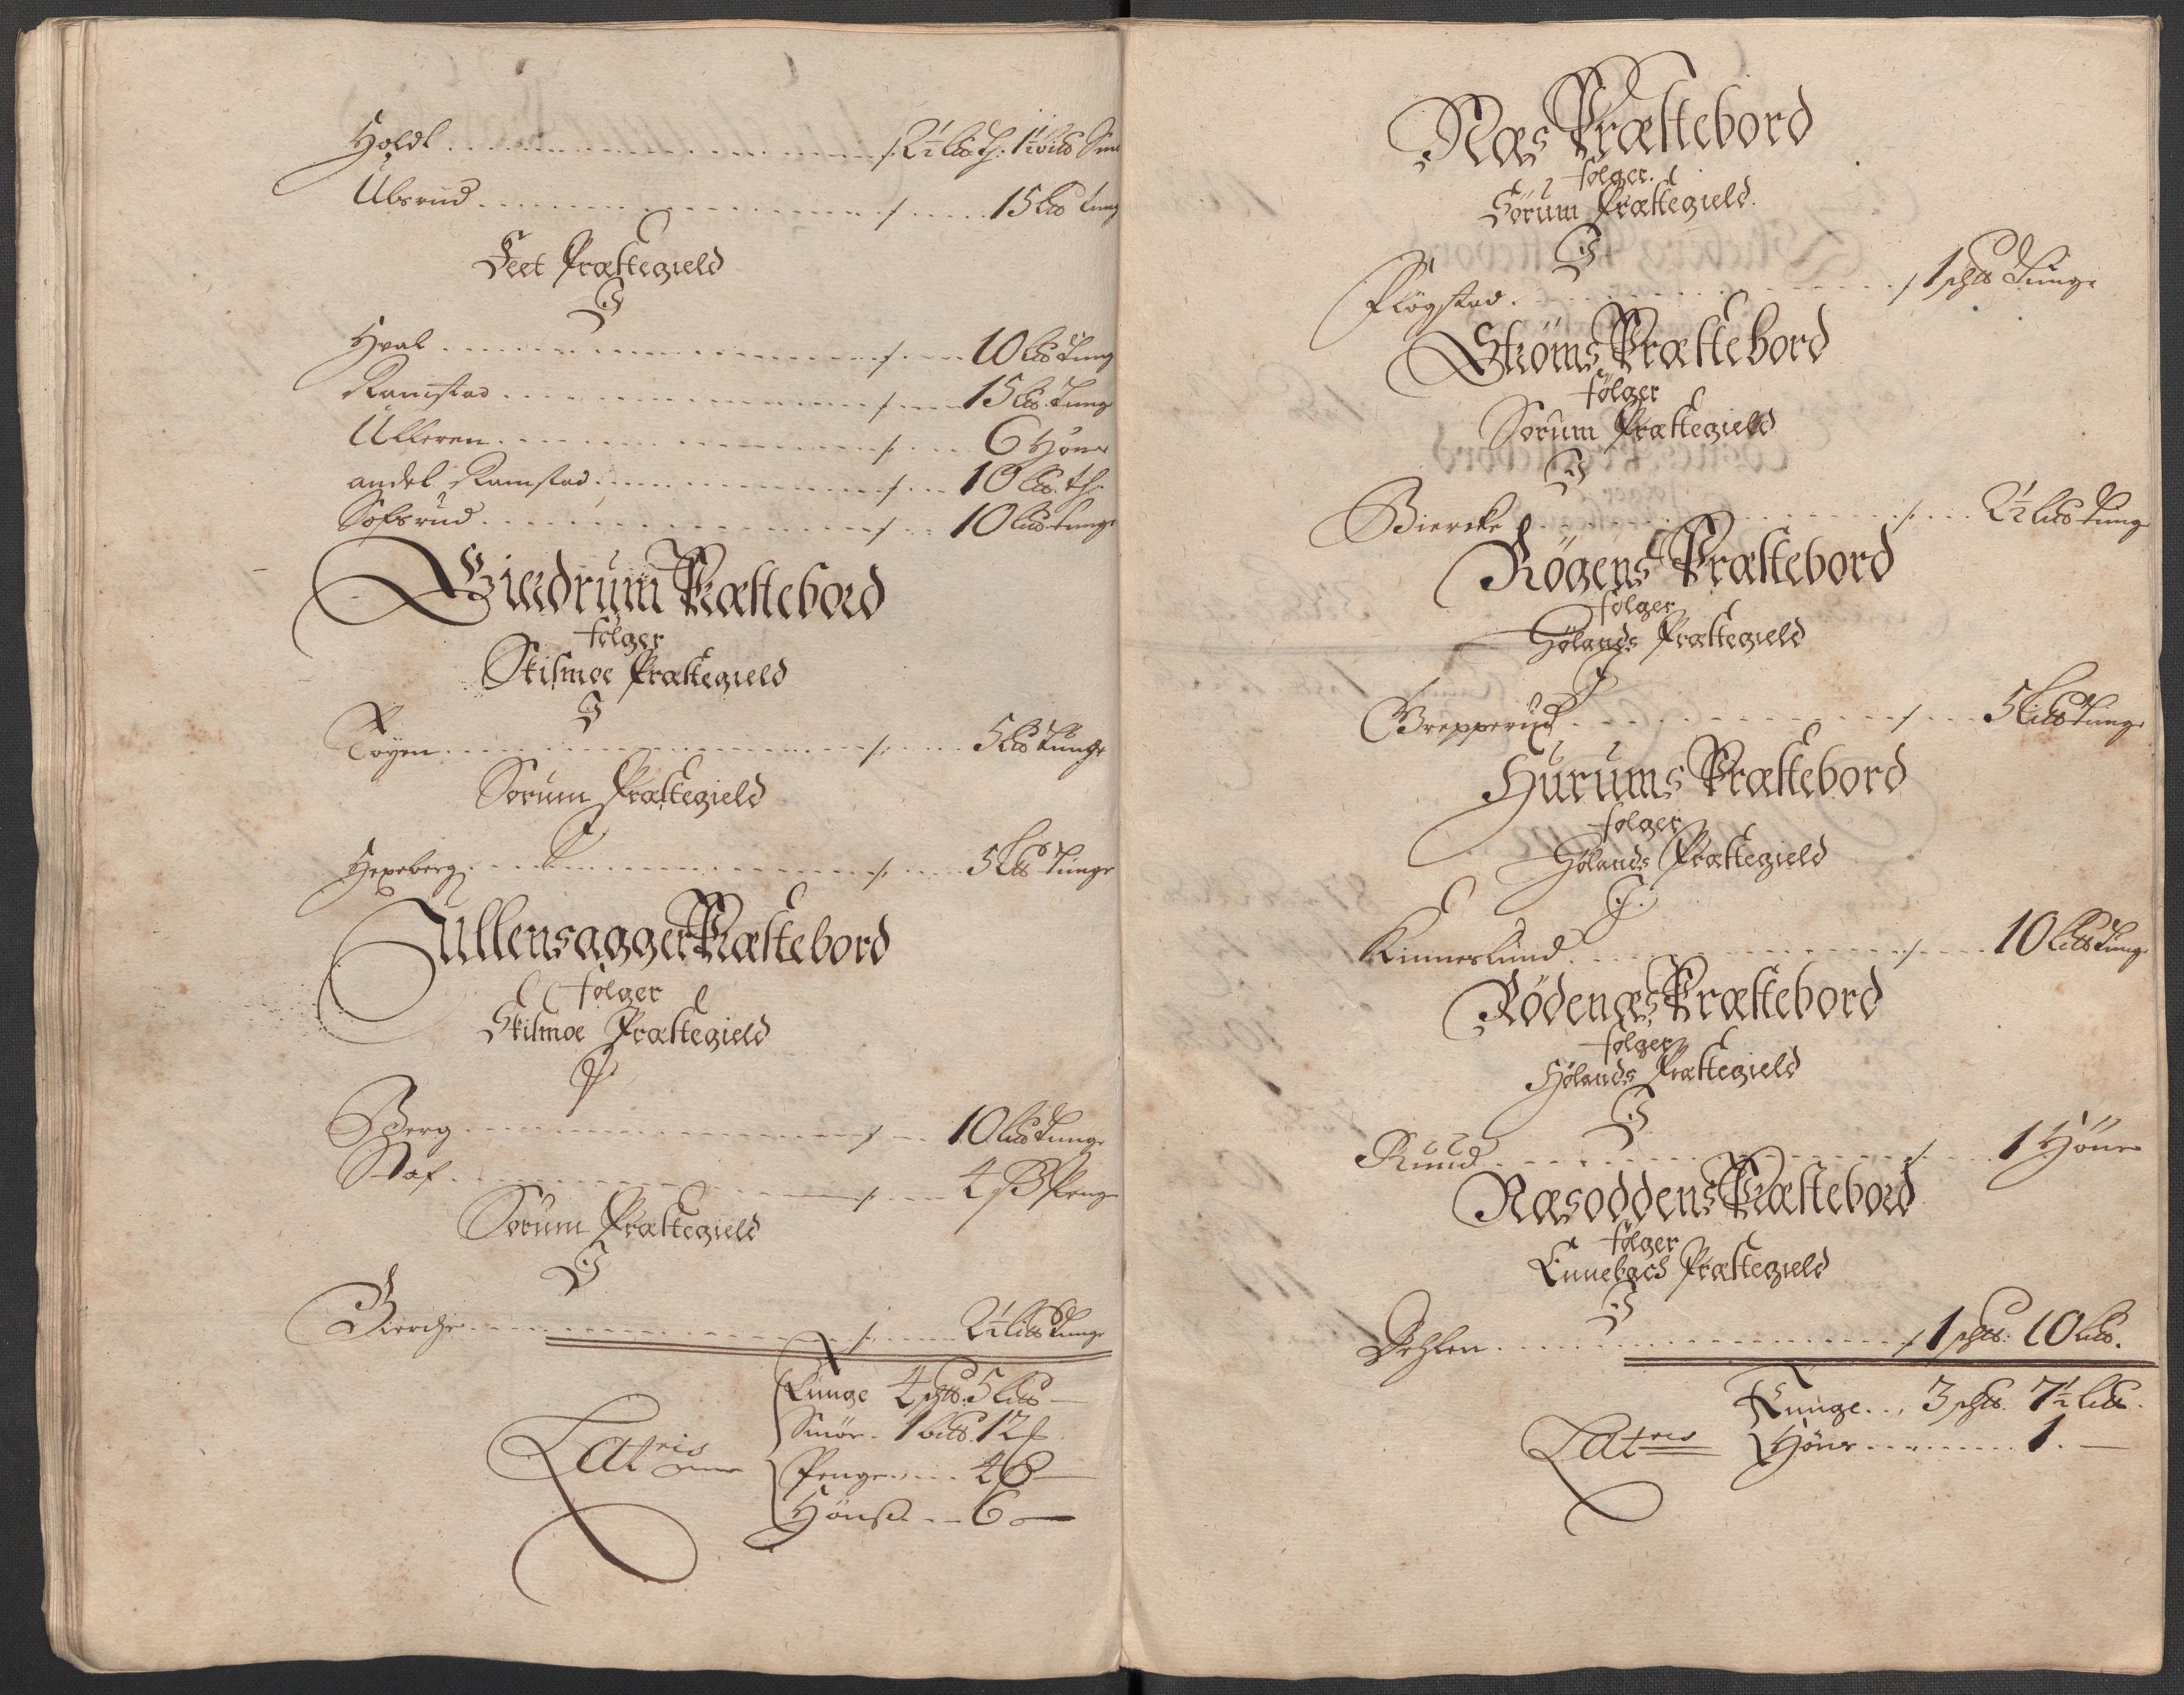 Holdl ... 2½ Lis. t: 1½ bis Smør
Ulvsrud ... 15 Lis tung
Feet Præstegield
Hval ... 10 Lis Tung
Ramstad ... 15 Lis. Tunge
Ulleren ... 6 Høns
andel Ramstad ... 10 Lis. t:
Sofsrud ... 10 Lis tunge
Gierdrum Præstebord
følger
Skismoe Præstegield
Tøyen ... 5 Lis Tunge
Sørum Præstegield
Hexeberg ... 5 Lis Tunge
Ullensagger Præstebord
følger
Skismoe Præstegield
Berg ... 10 Lis Tunge
Naf ... 4 ß Penge
Sørum Præstegield
Biercke ... 2½ Lis Tunge
Tunge 4 sch℔. 5 Lis
Smør - 1 bis. 12
Latris
Penge ... 4 ß
Hønß ... 6
Næs Præstebord
følger
Sørum Præstegield
Fløgstad ... 1 sch℔ Tunge
Strøms Præstebord
følger
Sørum Præstegield
Biercke ... 2½ Lis Tunge
Røgens Præstebord
følger
Hølands Præstegield
Brepperud ... 5 Lis Tunge
Hurums Præstebord
følger
Hølands Præstegield
Kinneslund ... 10 Lis Tunge
Rødenæs Præstebord
følger
Hølands Præstegield
Ruud ... 1 Høns
Næsoddens Præstebord
følger
Ennebach Præstegield
Dehlen ... 1 sch℔. 10 Lis.
Tunge ... 3 sch℔. 7½ Lis.
Latris
Høns ... 1.